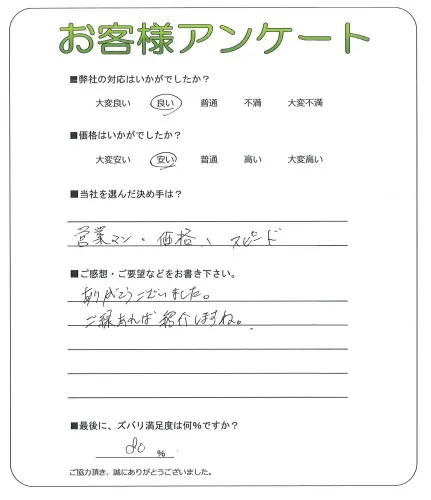 お客様アンケート
■弊社の対応はいかがでしたか？
大変良い 良い 普通 不満 大変不満
■価格はいかがでしたか？
大変安い 安い 普通 高い 大変高い
■当社を選んだ決め手は？
営業マン、価格、スピード
■ご感想・ご要望などをお書き下さい。
ありがとうございました。
ご縁あれば紹介しますね。
■最後に、ズバリ満足度は何％ですか？
80 ％
ご協力頂き、誠にありがとうございました。